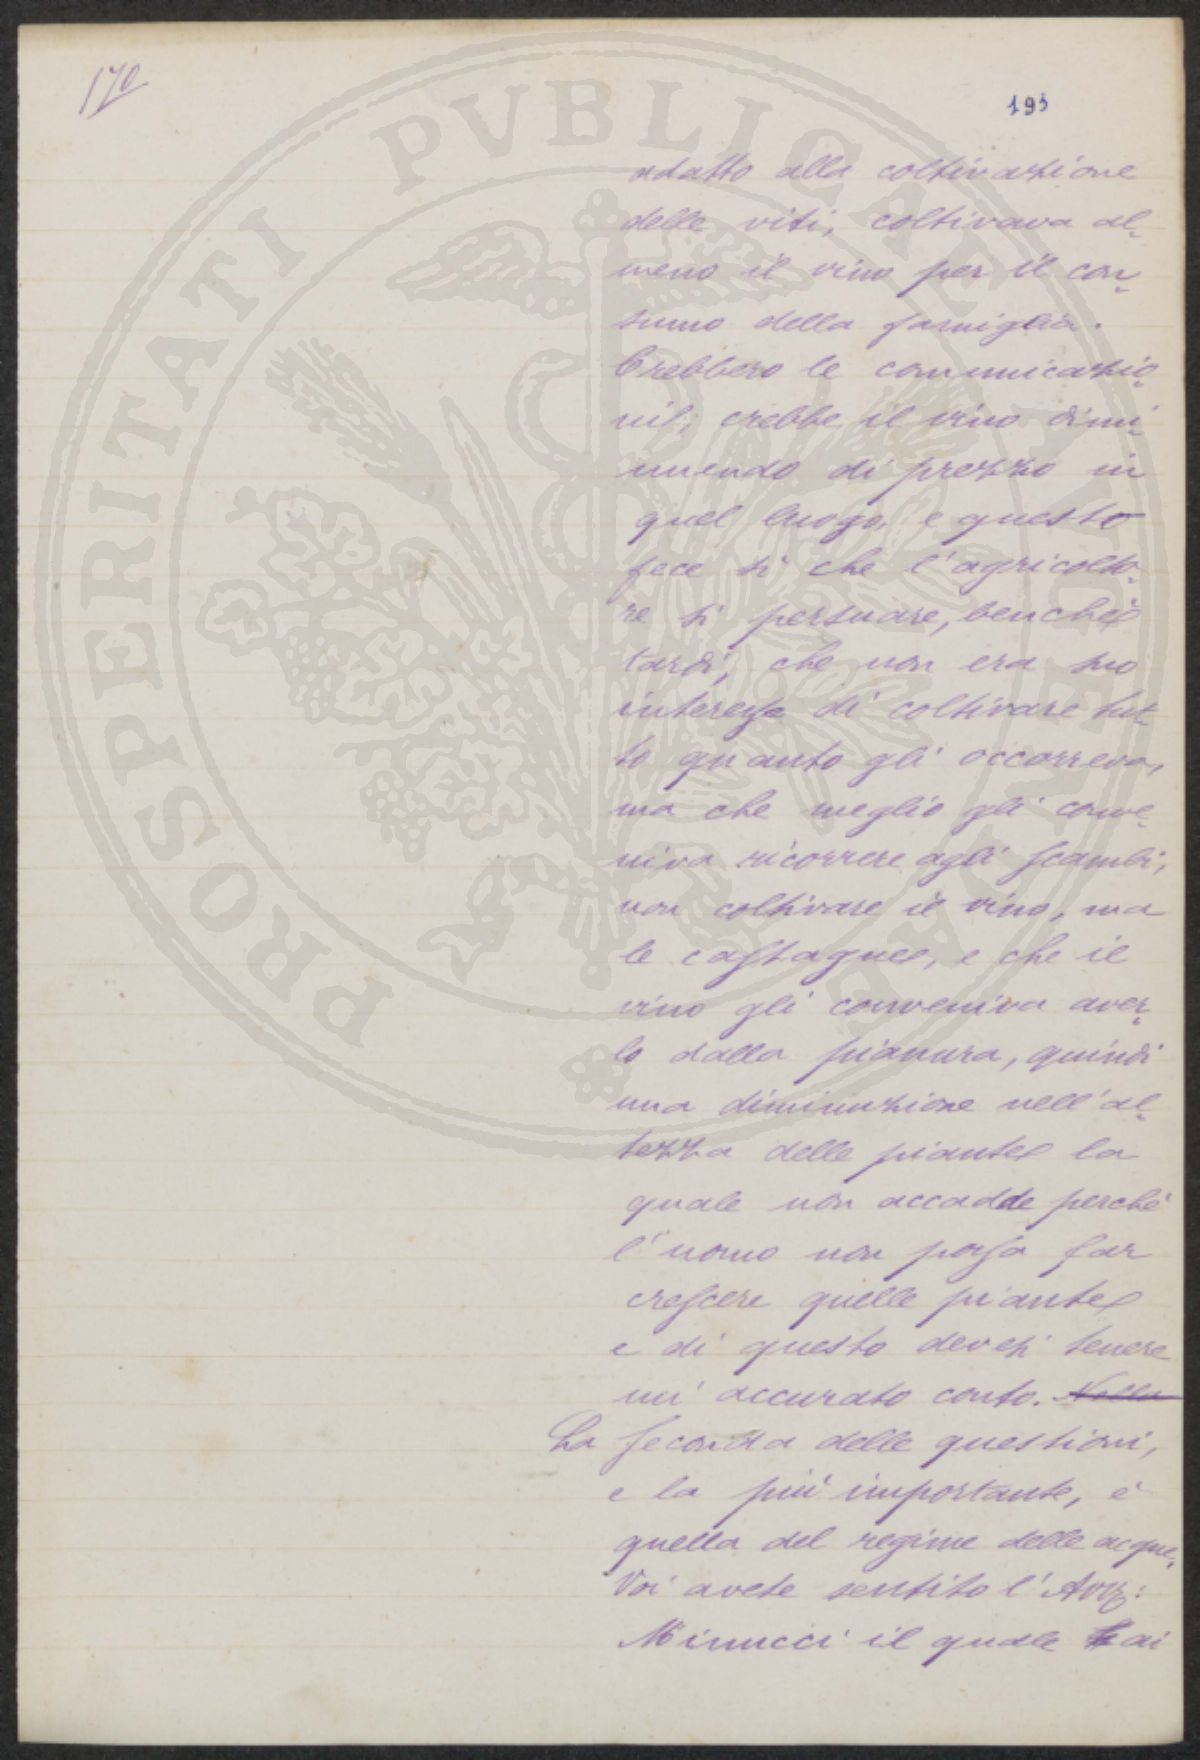 170
193
adatto alla coltivazione
delle viti, coltivava al-
meno il vino per il con-
sumo della famiglia.
Crebbero le comunicazio-
ni, crebbe il vino dimi-
nuendo di prezzo in
quel luogo, e questo
fece sì che l'agricolto-
re si persuase, benchè
tardi, che non era suo
interesse di coltivare tut
to quanto gli occorreva,
ma che meglio gli conve-
niva ricorrere agli scambi,
non coltivare il vino, ma
le castagne, e che il
vino gli conveniva aver-
lo dalla pianura, quindi
una diminuzione nell'al-
tezza delle piante la
quale non accadde perchè
l'uomo non possa far
crescere quelle piante
e di questo devesi tenere
un' accurato conto. Nella
La seconda delle questioni,
e la più importante, è
quella del regime delle acque.
Voi avete sentito l'Avv:
Minucci il quale ai
PROSPERITATI PVBLICAE